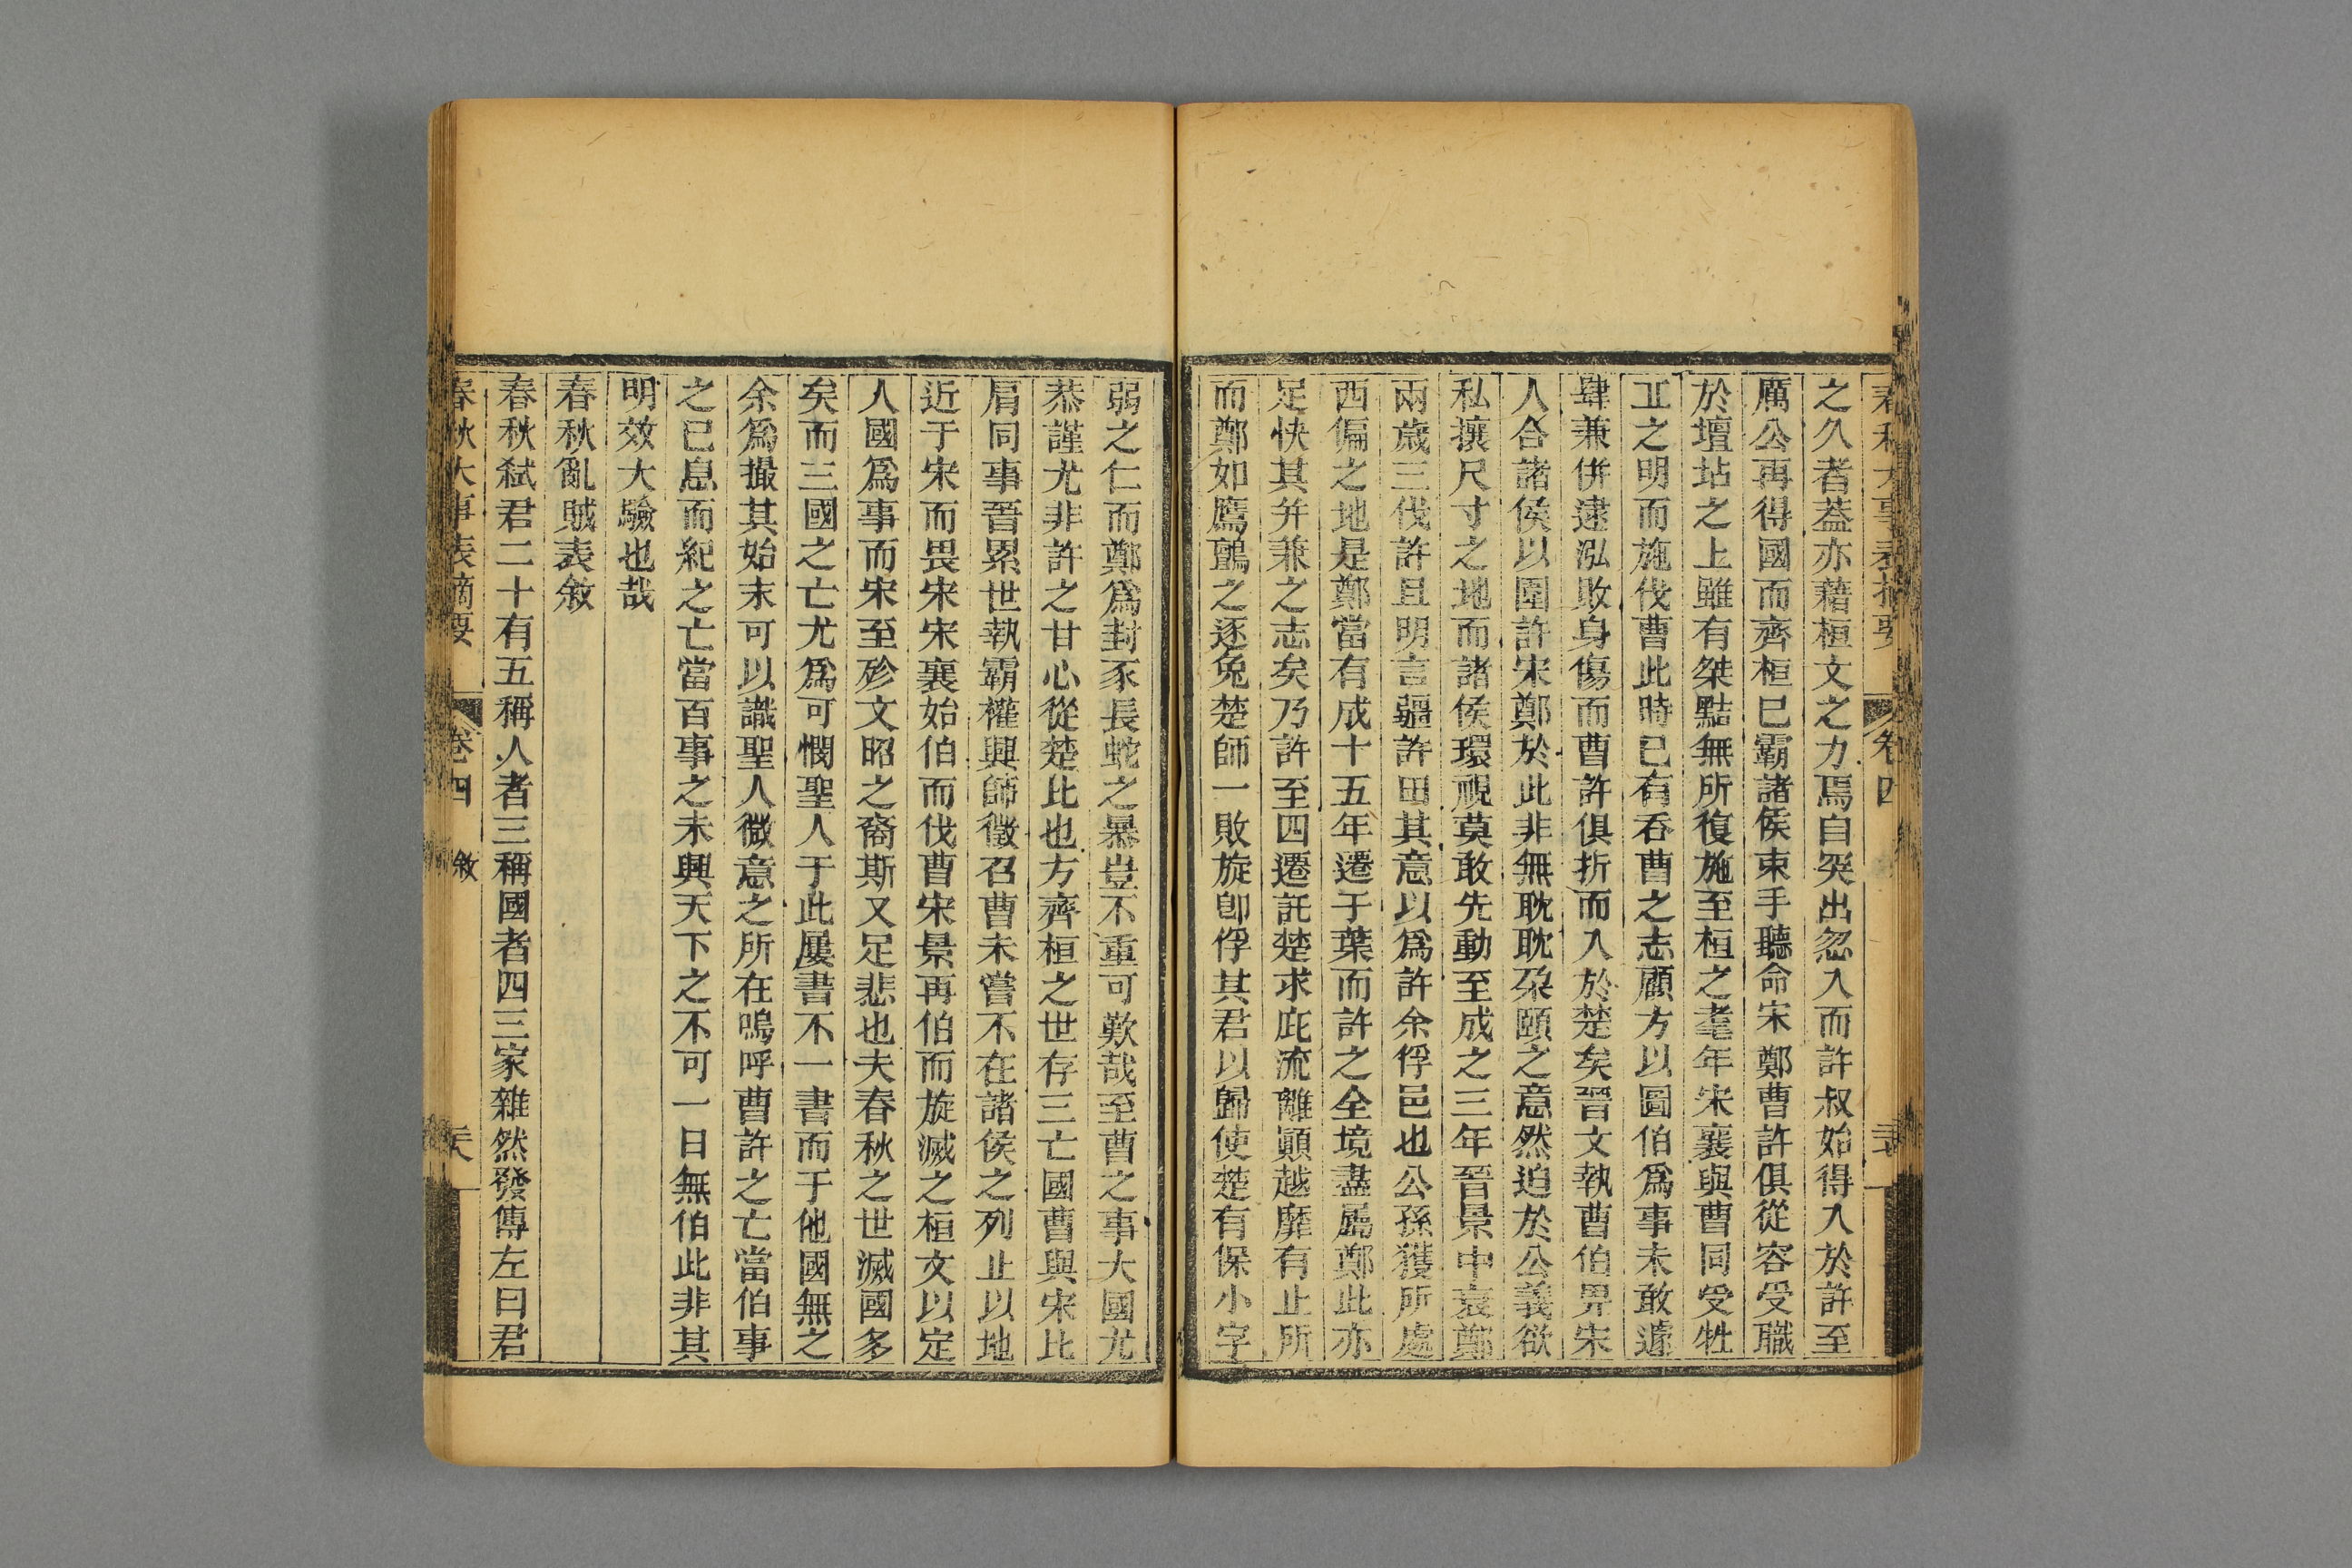 春秋大事表摘要 卷四
之久者葢亦藉桓文之力焉自突出忽入而許叔始得入於許至
厲公再得國而齊桓已霸諸侯束手聽命宋鄭曹許俱從容受職
於壇坫之上雖有桀黠無所復施至桓之耄年宋襄與曹同受牲
㱏之明而施伐曹此時已有吞曹之志顧方以圖伯爲事未敢遽
肆兼併逮泓敗身傷而曹許俱折而入於楚矣晉文執曹伯畀宋
人合諸侯以圍許宋鄭於此非無耽耽朶頤之意然迫於公義欲
私攘尺寸之地而諸侯環視莫敢先動至成之三年晉景中衰鄭
兩歲三伐許且明言疆許田其意以爲許余俘邑也公孫獲所處
西偏之地是鄭當有成十五年遷于葉而許之全境盡屬鄭此亦
足快其并兼之志矣乃許至四遷託楚求庇流離顚越靡有止所
而鄭如鷹鸇之逐兔楚師一敗旋卽俘其君以歸使楚有保小字
弱之仁而鄭爲封豕長蛇之暴豈不重可歎哉至曹之事大國尤
恭謹尤非許之甘心從楚比也方齊桓之世存三亡國曹與宋比
肩同事晉累世執霸權興師徵召曹未嘗不在諸侯之列止以地
近于宋而畏宋宋襄始伯而伐曹宋景再伯而旋滅之桓文以定
人國爲事而宋至殄文昭之裔斯又足悲也夫春秋之世滅國多
矣而三國之亡尤爲可憫聖人于此屢書不一書而于他國無之
余爲撮其始末可以識聖人微意之所在嗚呼曹許之亡當伯事
之已息而紀之亡當百事之未興天下之不可一日無伯此非其
明效大驗也哉
春秋亂賊表敘
春秋弑君二十有五稱人者三稱國者四三家雜然發傳左曰君
春秋大事表摘要 卷四 敘 天